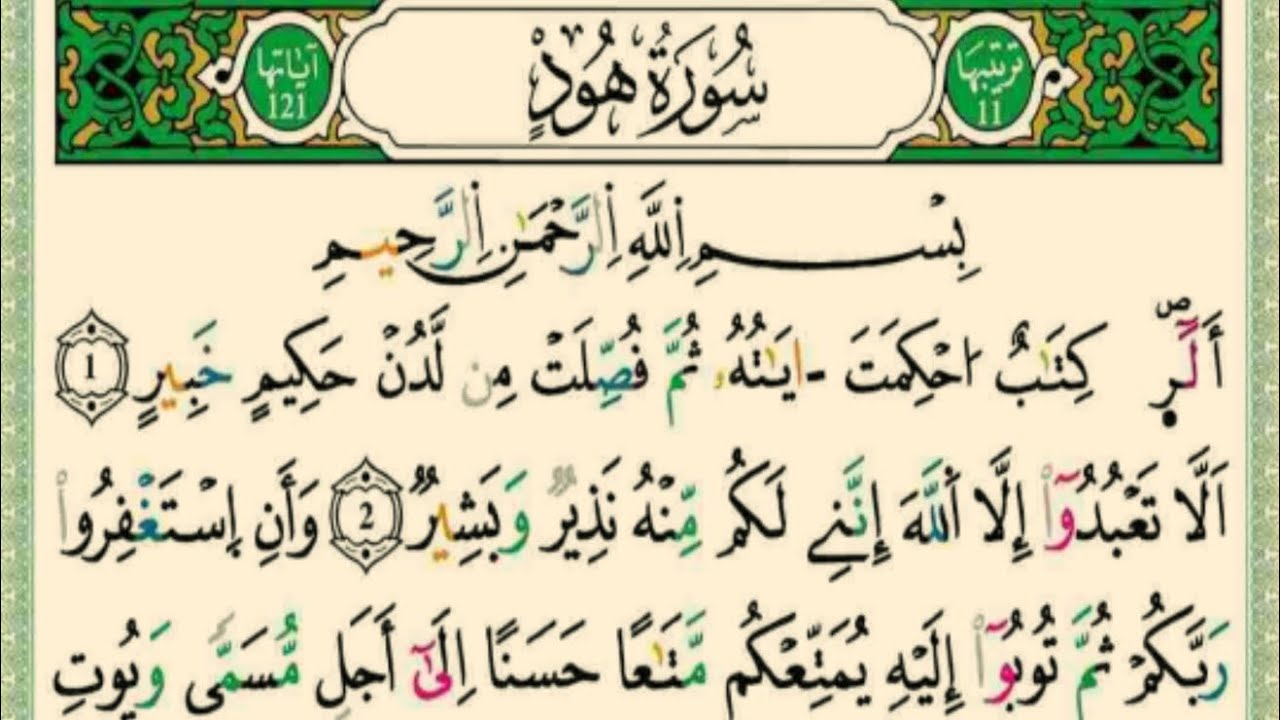 ترتيبها
11
سُورَةُ هُودٍ
آيَاتها
121
بِسْمِ اِ۬للَّهِ اِ۬لرَّحْمَٰنِ اِ۬لرَّحِيمِ
أَلَٓرۖ كِتَٰبٌ اُحْكِمَتَ ـ ايَٰتُهُۥ ثُمَّ فُصِّلَتْ مِن لَّدُنْ حَكِيمٍ خَبِيرٍ 1
اَلَّا تَعْبُدُوٓا۟ إِلَّا اَ۬للَّهَ إِنَّنِے لَكُم مِّنْهُ نَذِيرٌ وَبَشِيرٌ 2 وَأَنِ اِ۪سْتَغْفِرُوا۟
رَبَّكُمْ ثُمَّ تُوبُوٓا۟ إِلَيْهِ يُمَتِّعْكُم مَّتَٰعًا حَسَنًا اِلَىٰٓ أَجَلٍ مُّسَمًّى وَيُوتِ